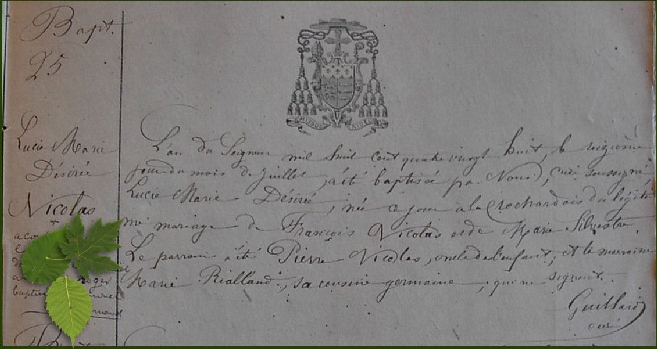 Bapt.
25
Lucie Marie
Désirée
Nicolas
L'an du Seigneur mil huit cent quatre vingt huit, le
jour du mois de Juillet, a été baptisée par Nous, curé soussigné
Lucie Marie Désirée, née ce jour à la Rochardois du légiti
me mariage de François Nicolas et de Marie Silvestre.
Le parrain a été Pierre Nicolas, oncle de l'enfant, et la marraine
Marie Rialland, sa cousine germaine, qui ne signent.
Guillard
curé